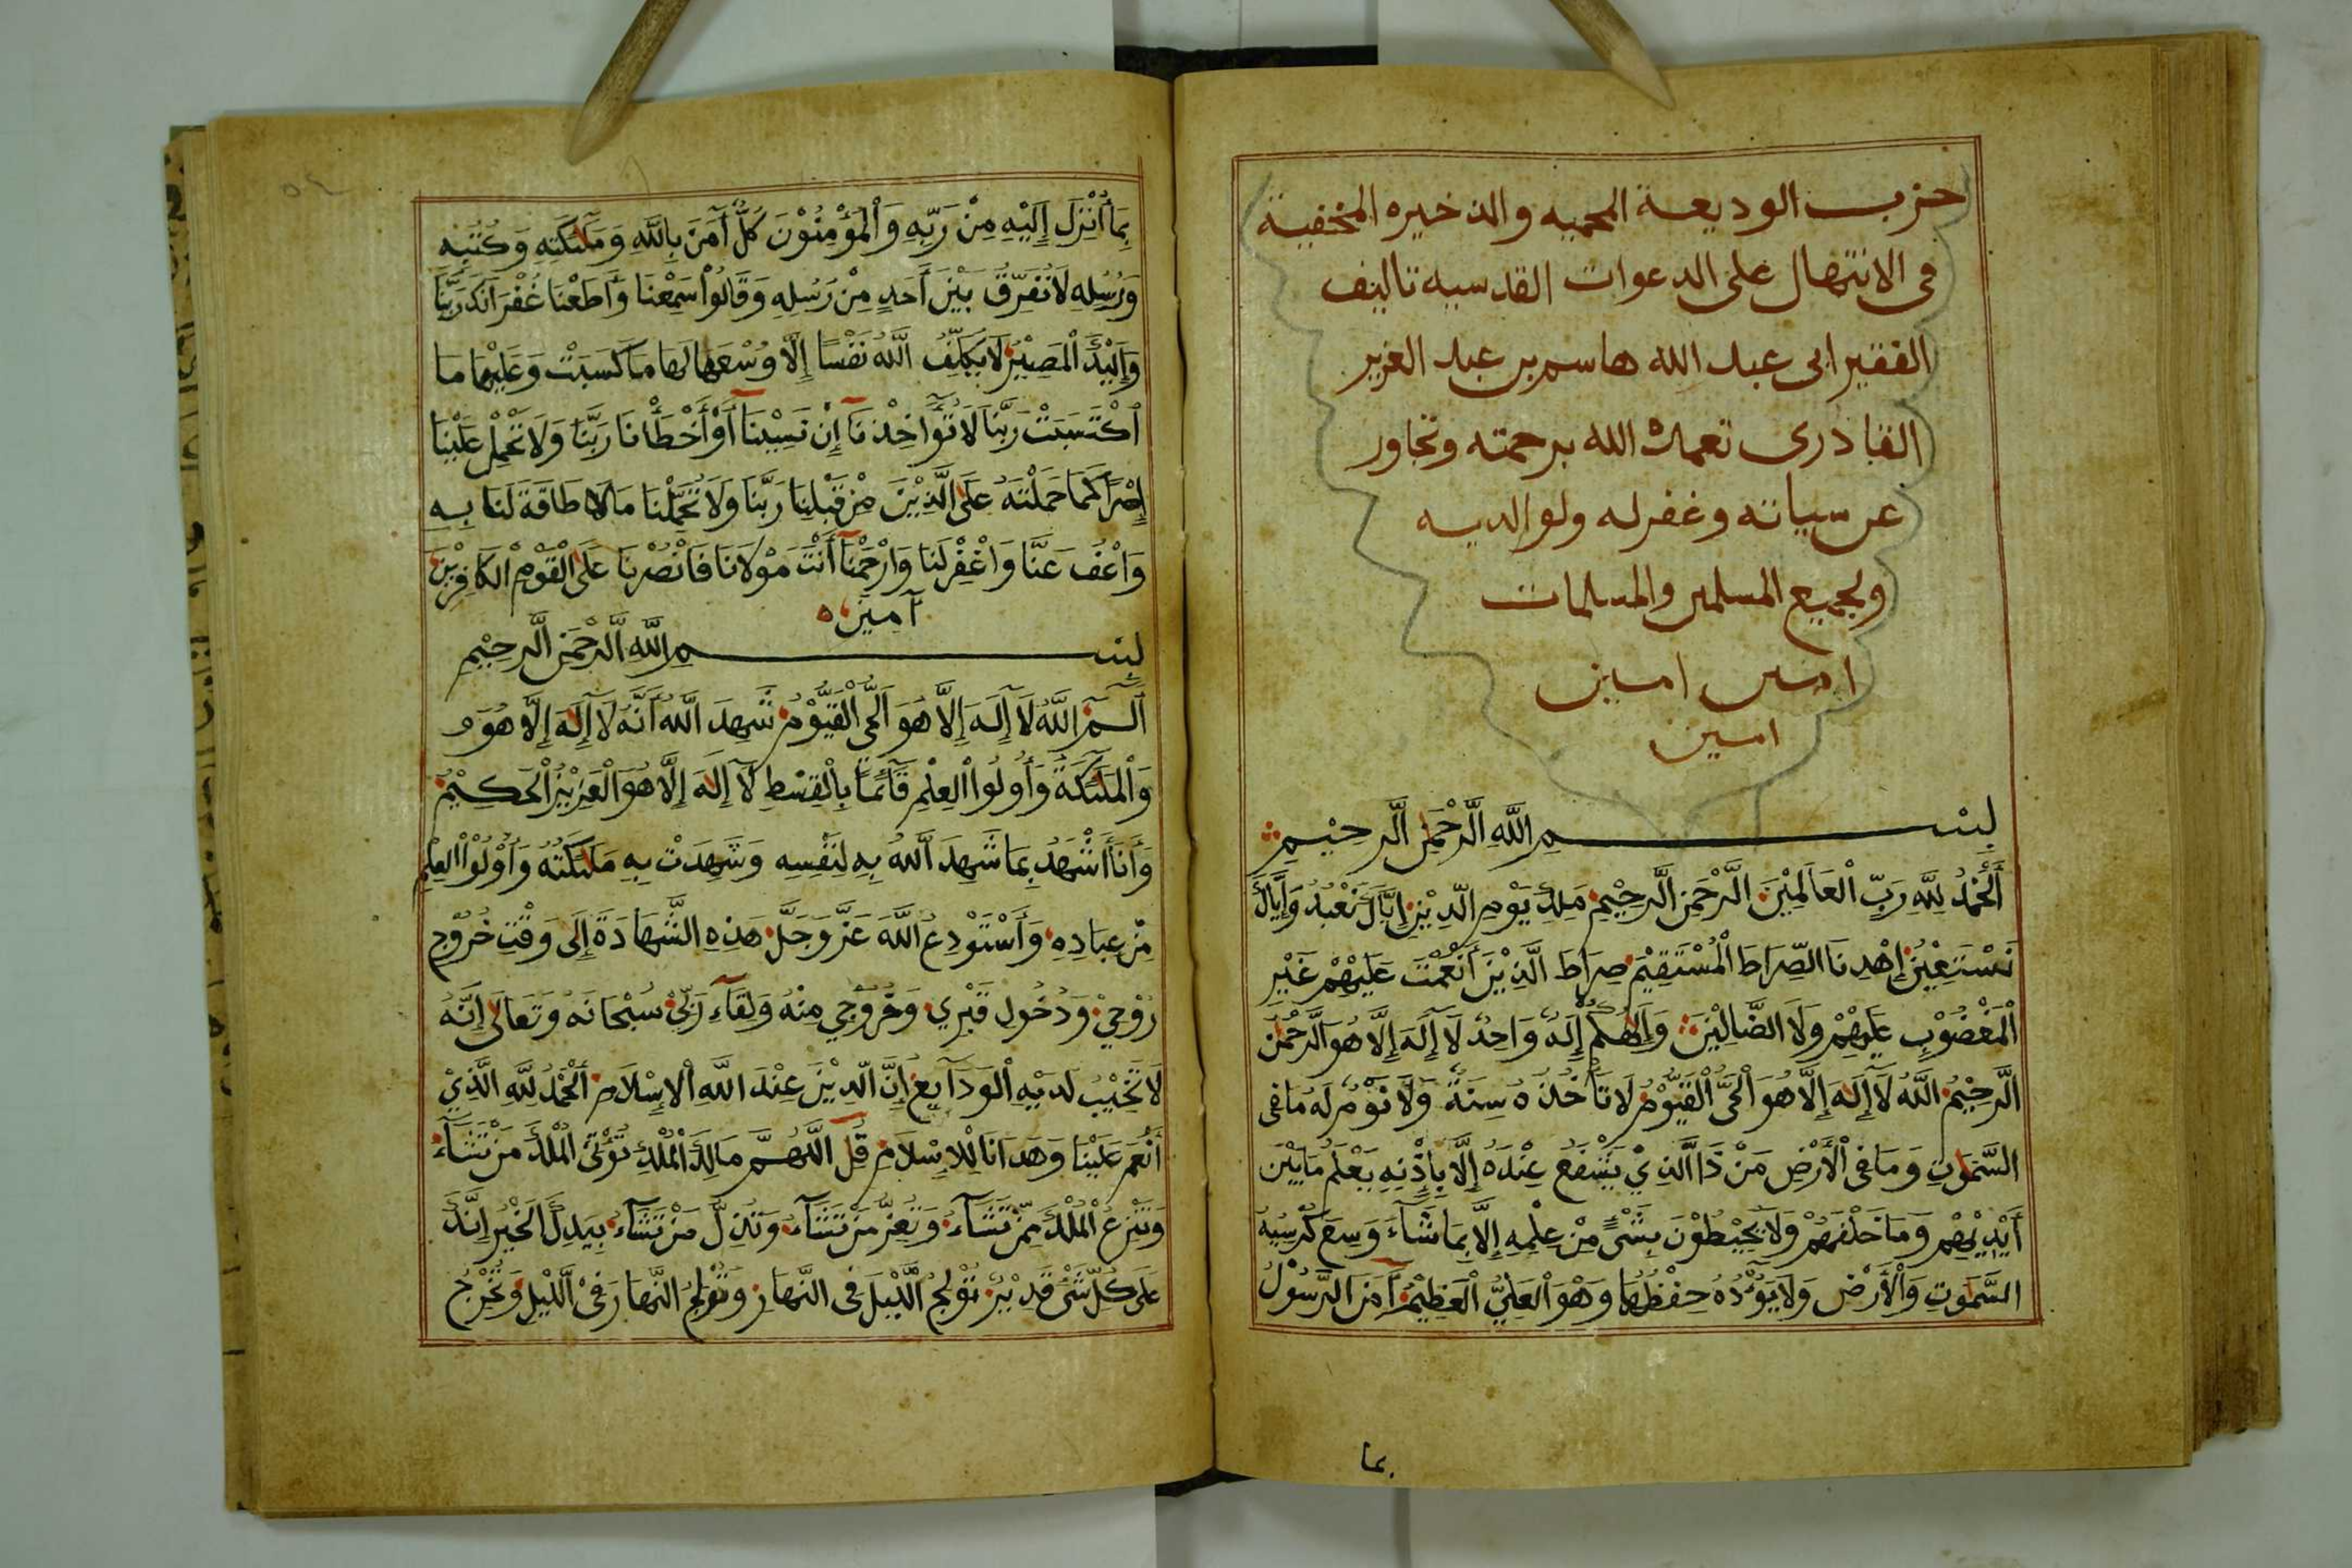 حزب الوديعة المحميه والذخيره المخفية
فى الانتهال على الدعوات القدسيه تاليف
الفقير ابى عبد الله هاسم بن عبد العزيز
القادرى تغمده الله برحمته وتجاوز
عن سياته وغفر له ولوالديه
ولجميع المسلمين والمسلمات
امين امين
امين
بِسْمِ اللَّهِ الرَّحْمٰنِ الرَّحِيْمِ
اَلْحَمْدُ لِلَّهِ رَبِّ الْعَالَمِيْنَ الرَّحْمَنِ الرَّحِيْمِ مَلِكِ يَوْمِ الدِّيْنِ إِيَّاكَ نَعْبُدُ وَإِيَّاكَ
نَسْتَعِيْنُ إِهْدِنَا الصِّرَاطَ الْمُسْتَقِيْمَ صِرَاطَ الَّذِيْنَ أَنْعَمْتَ عَلَيْهِمْ غَيْرِ
الْمَغْضُوْبِ عَلَيْهِمْ وَلَا الضَّالِيْنَ وَإِلَهُكُمْ إِلَهٌ وَاحِدٌ لَا إِلَهَ إِلَّا هُوَ الرَّحْمٰنُ
الرَّحِيْمُ اللَّهُ لَا إِلَهَ إِلَّا هُوَ الْحَيُّ الْقَيُّوْمُ لَا تَأْخُذُهُ سِنَةٌ وَلَا نَوْمٌ لَهُ مَا فِى
السَّمٰوٰتِ وَمَا فِى الْأَرْضِ مَنْ ذَا الَّذِيْ يَشْفَعُ عِنْدَهُ إِلَّا بِإِذْنِهِ يَعْلَمُ مَا بَيْنَ
أَيْدِيْهِمْ وَمَا خَلْفَهُمْ وَلَا يُحِيْطُوْنَ بِشَيْءٍ مِنْ عِلْمِهِ إِلَّا بِمَا شَآءَ وَسِعَ كُرْسِيُّهُ
السَّمٰوٰتِ وَالْأَرْضَ وَلَا يَؤُدُهُ حِفْظُهُمَا وَهُوَ الْعَلِيُّ الْعَظِيْمُ آمَنَ الرَّسُوْلُ
بما
بِمَا أُنْزِلَ إِلَيْهِ مِنْ رَبِّهِ وَالْمُؤْمِنُوْنَ كُلٌّ آمَنَ بِاللَّهِ وَمَلٰئِكَتِهِ وَكُتُبِهِ
وَرُسُلِهِ لَا نُفَرِّقُ بَيْنَ أَحَدٍ مِنْ رُسُلِهِ وَقَالُوْا سَمِعْنَا وَأَطَعْنَا غُفْرَانَكَ رَبَّنَا
وَإِلَيْكَ الْمَصِيْرُ لَا يُكَلِّفُ اللَّهُ نَفْسًا إِلَّا وُسْعَهَا لَهَا مَا كَسَبَتْ وَعَلَيْهَا مَا
اكْتَسَبَتْ رَبَّنَا لَا تُؤَاخِذْنَا إِنْ نَسِيْنَا أَوْ أَخْطَأْنَا رَبَّنَا وَلَا تَحْمِلْ عَلَيْنَا
إِصْرًا كَمَا حَمَلْتَهُ عَلَى الَّذِيْنَ مِنْ قَبْلِنَا رَبَّنَا وَلَا تُحَمِّلْنَا مَا لَا طَاقَةَ لَنَا بِهِ
وَاعْفُ عَنَّا وَاغْفِرْ لَنَا وَارْحَمْنَا أَنْتَ مَوْلَانَا فَانْصُرْنَا عَلَى الْقَوْمِ الْكَافِرِيْنَ
آمين
بِسْمِ اللَّهِ الرَّحْمَنِ الرَّحِيْمِ
آلٓمٓ اللَّهُ لَا إِلَهَ إِلَّا هُوَ الْحَيُّ الْقَيُّوْمُ شَهِدَ اللَّهُ أَنَّهُ لَا إِلَهَ إِلَّا هُوَ و
وَالْمَلٰئِكَةُ وَأُولُوا الْعِلْمِ قَآئِمًا بِالْقِسْطِ لَآ إِلَهَ إِلَّا هُوَ الْعَزِيْزُ الْحَكِيْمُ
وَأَنَا أَشْهَدُ بِمَا شَهِدَ اللَّهُ بِهِ لِنَفْسِهِ وَشَهِدَتْ بِهِ مَلٰئِكَتُهُ وَأُوْلُوْا الْعِلْمِ
مِنْ عِبَادِهِ وَأَسْتَوْدِعُ اللَّهَ عَزَّ وَجَلَّ هَذِهِ الشَّهَادَةَ إِلَى وَقْتِ خُرُوْجِ
رُوْحِيْ وَدُخُولِ قَبْرِي وَخُرُوْجِي مِنْهُ وَلِقَآءِ رَبِّيْ سُبْحَانَهُ وَتَعَالَى إِنَّهُ
لَا تَخِيْبُ لَدَيْهِ الْوَدَآيِعُ إِنَّ الدِّيْنَ عِنْدَ اللَّهِ الْإِسْلَامُ اَلْحَمْدُ لِلَّهِ الَّذِيْ
أَنْعَمَ عَلَيْنَا وَهَدَانَا لِلْإِسْلَامِ قُلِ اللَّهُمَّ مَالِكَ الْمُلْكِ تُؤْتِى الْمُلْكَ مَنْ تَشَآءُ
وَتَنْزِعُ الْمُلْكَ مِمَّنْ تَشَآءُ وَتُعِزُّ مَنْ تَشَآءُ وَتُذِلُّ مَنْ تَشَآءُ بِيَدِكَ الْخَيْرُ إِنَّكَ
عَلَى كُلِّ شَىْءٍ قَدِيْرٌ تُوْلِجُ اللَّيْلَ فِى النَّهَارِ وَتُوْلِجُ النَّهَارَ فِىْ اللَّيْلِ وَتُخْرِجُ